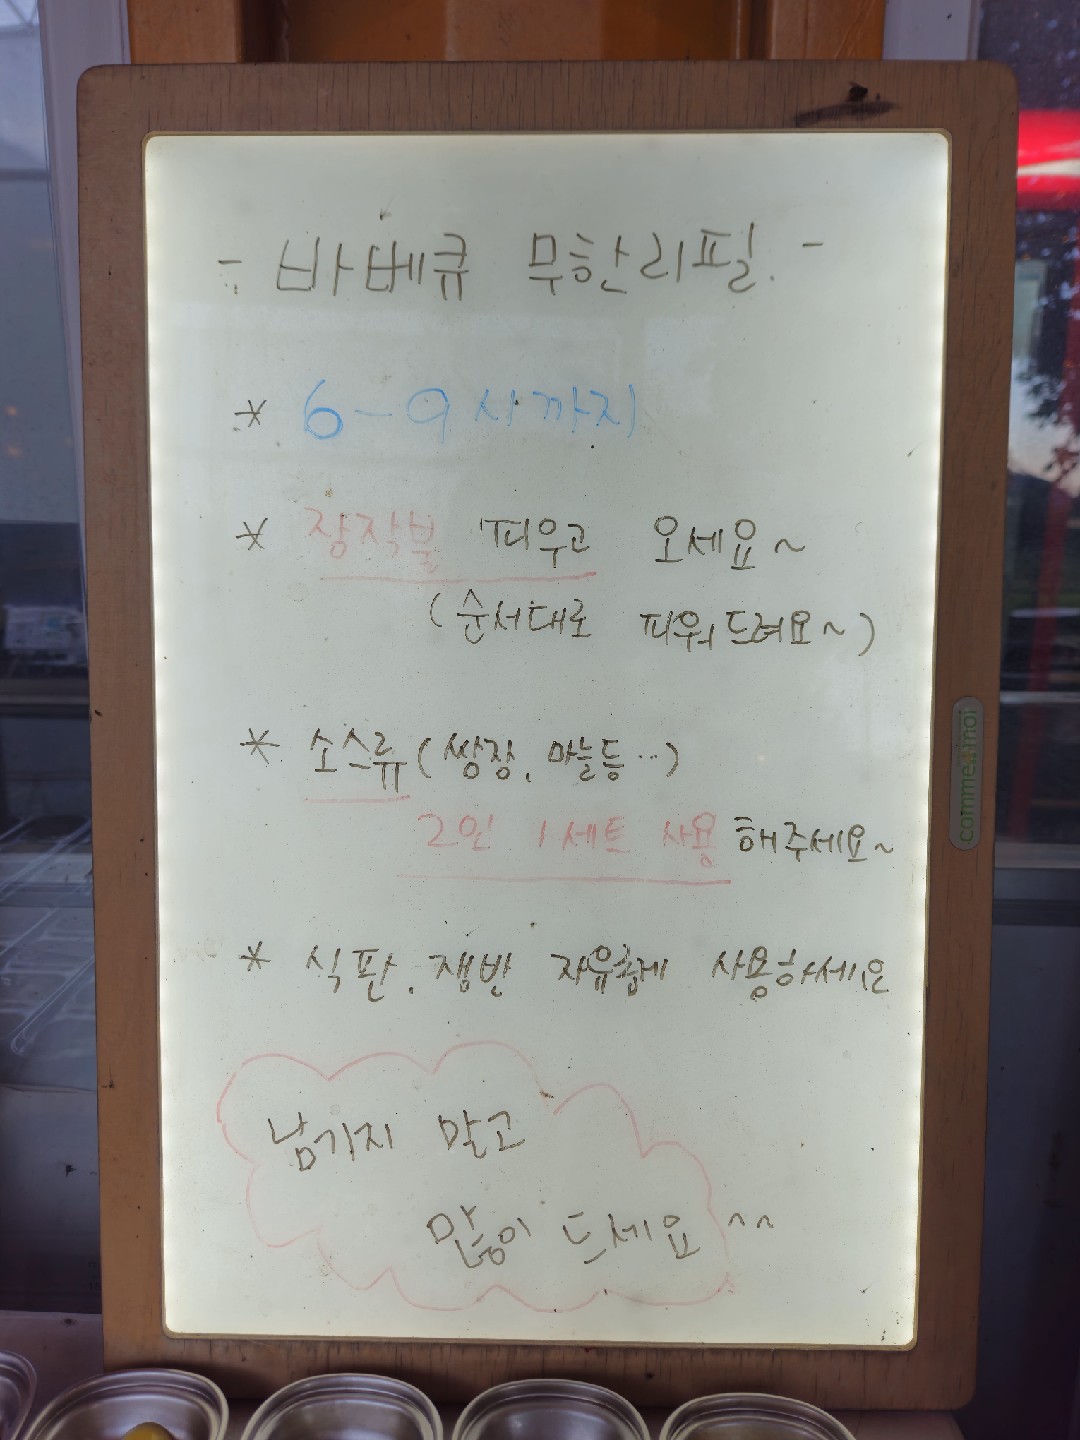 - 바베큐 무한리필. -
* 6-9시까지
* 장작불 피우고 오세요~
(순서대로 피워드려요~)
* 소스류 (쌈장, 마늘등..)
2인 1세트 사용 해주세요~
* 식판, 쟁반 자유롭게 사용하세요
남기지 말고
많이 드세요 ^^
comme.moi